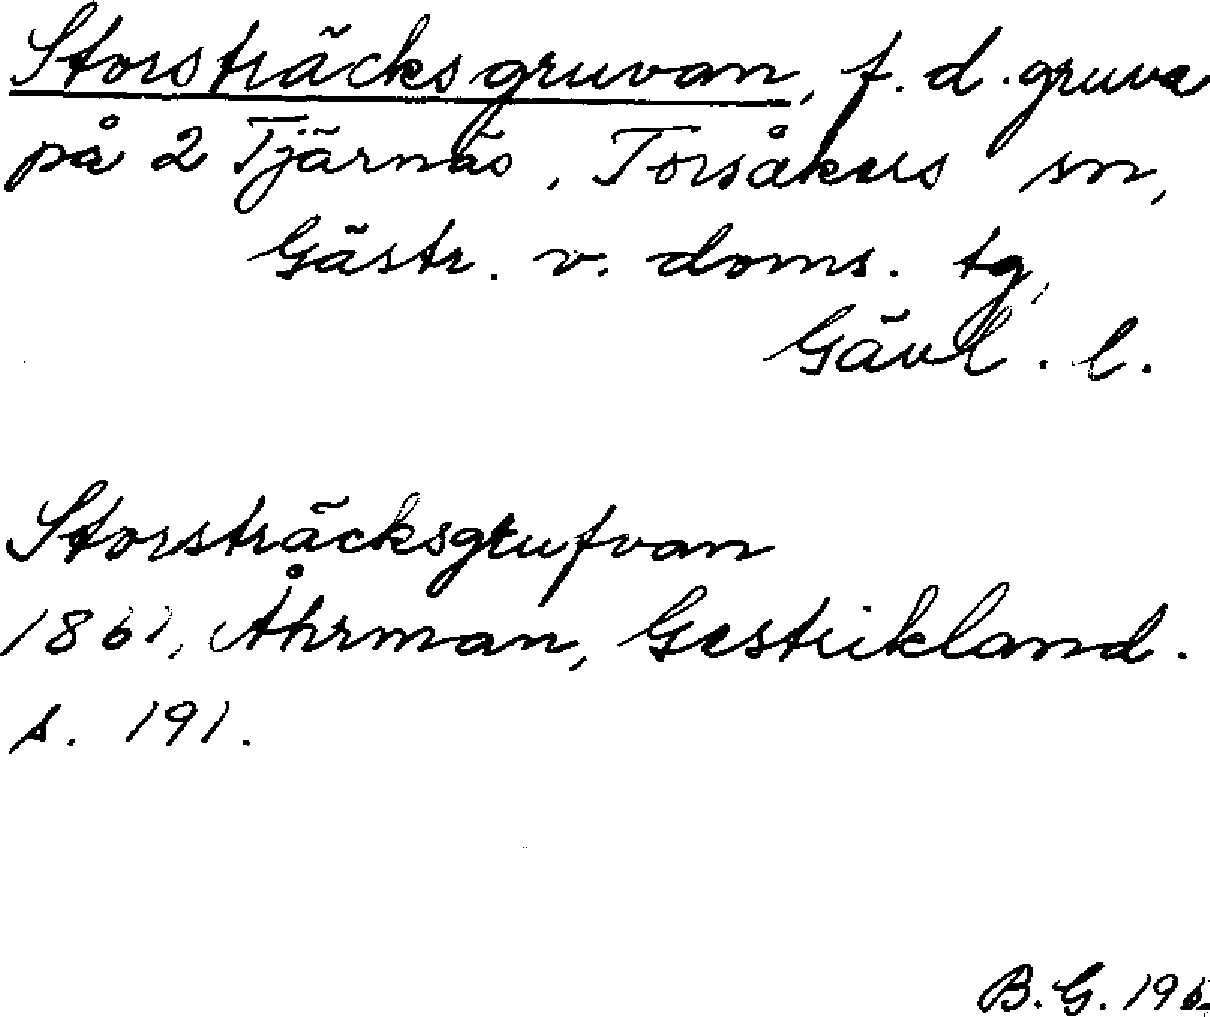 Storsträcksgruvan, f. d. gruva
på 2 Tjärnäs, Torsåkers sn,
Gästr. v. doms. tg,
Gävl. l.
Storsträcksgrufvan
1861, Åhrman, Gestrikland.
s. 191.
B. G.